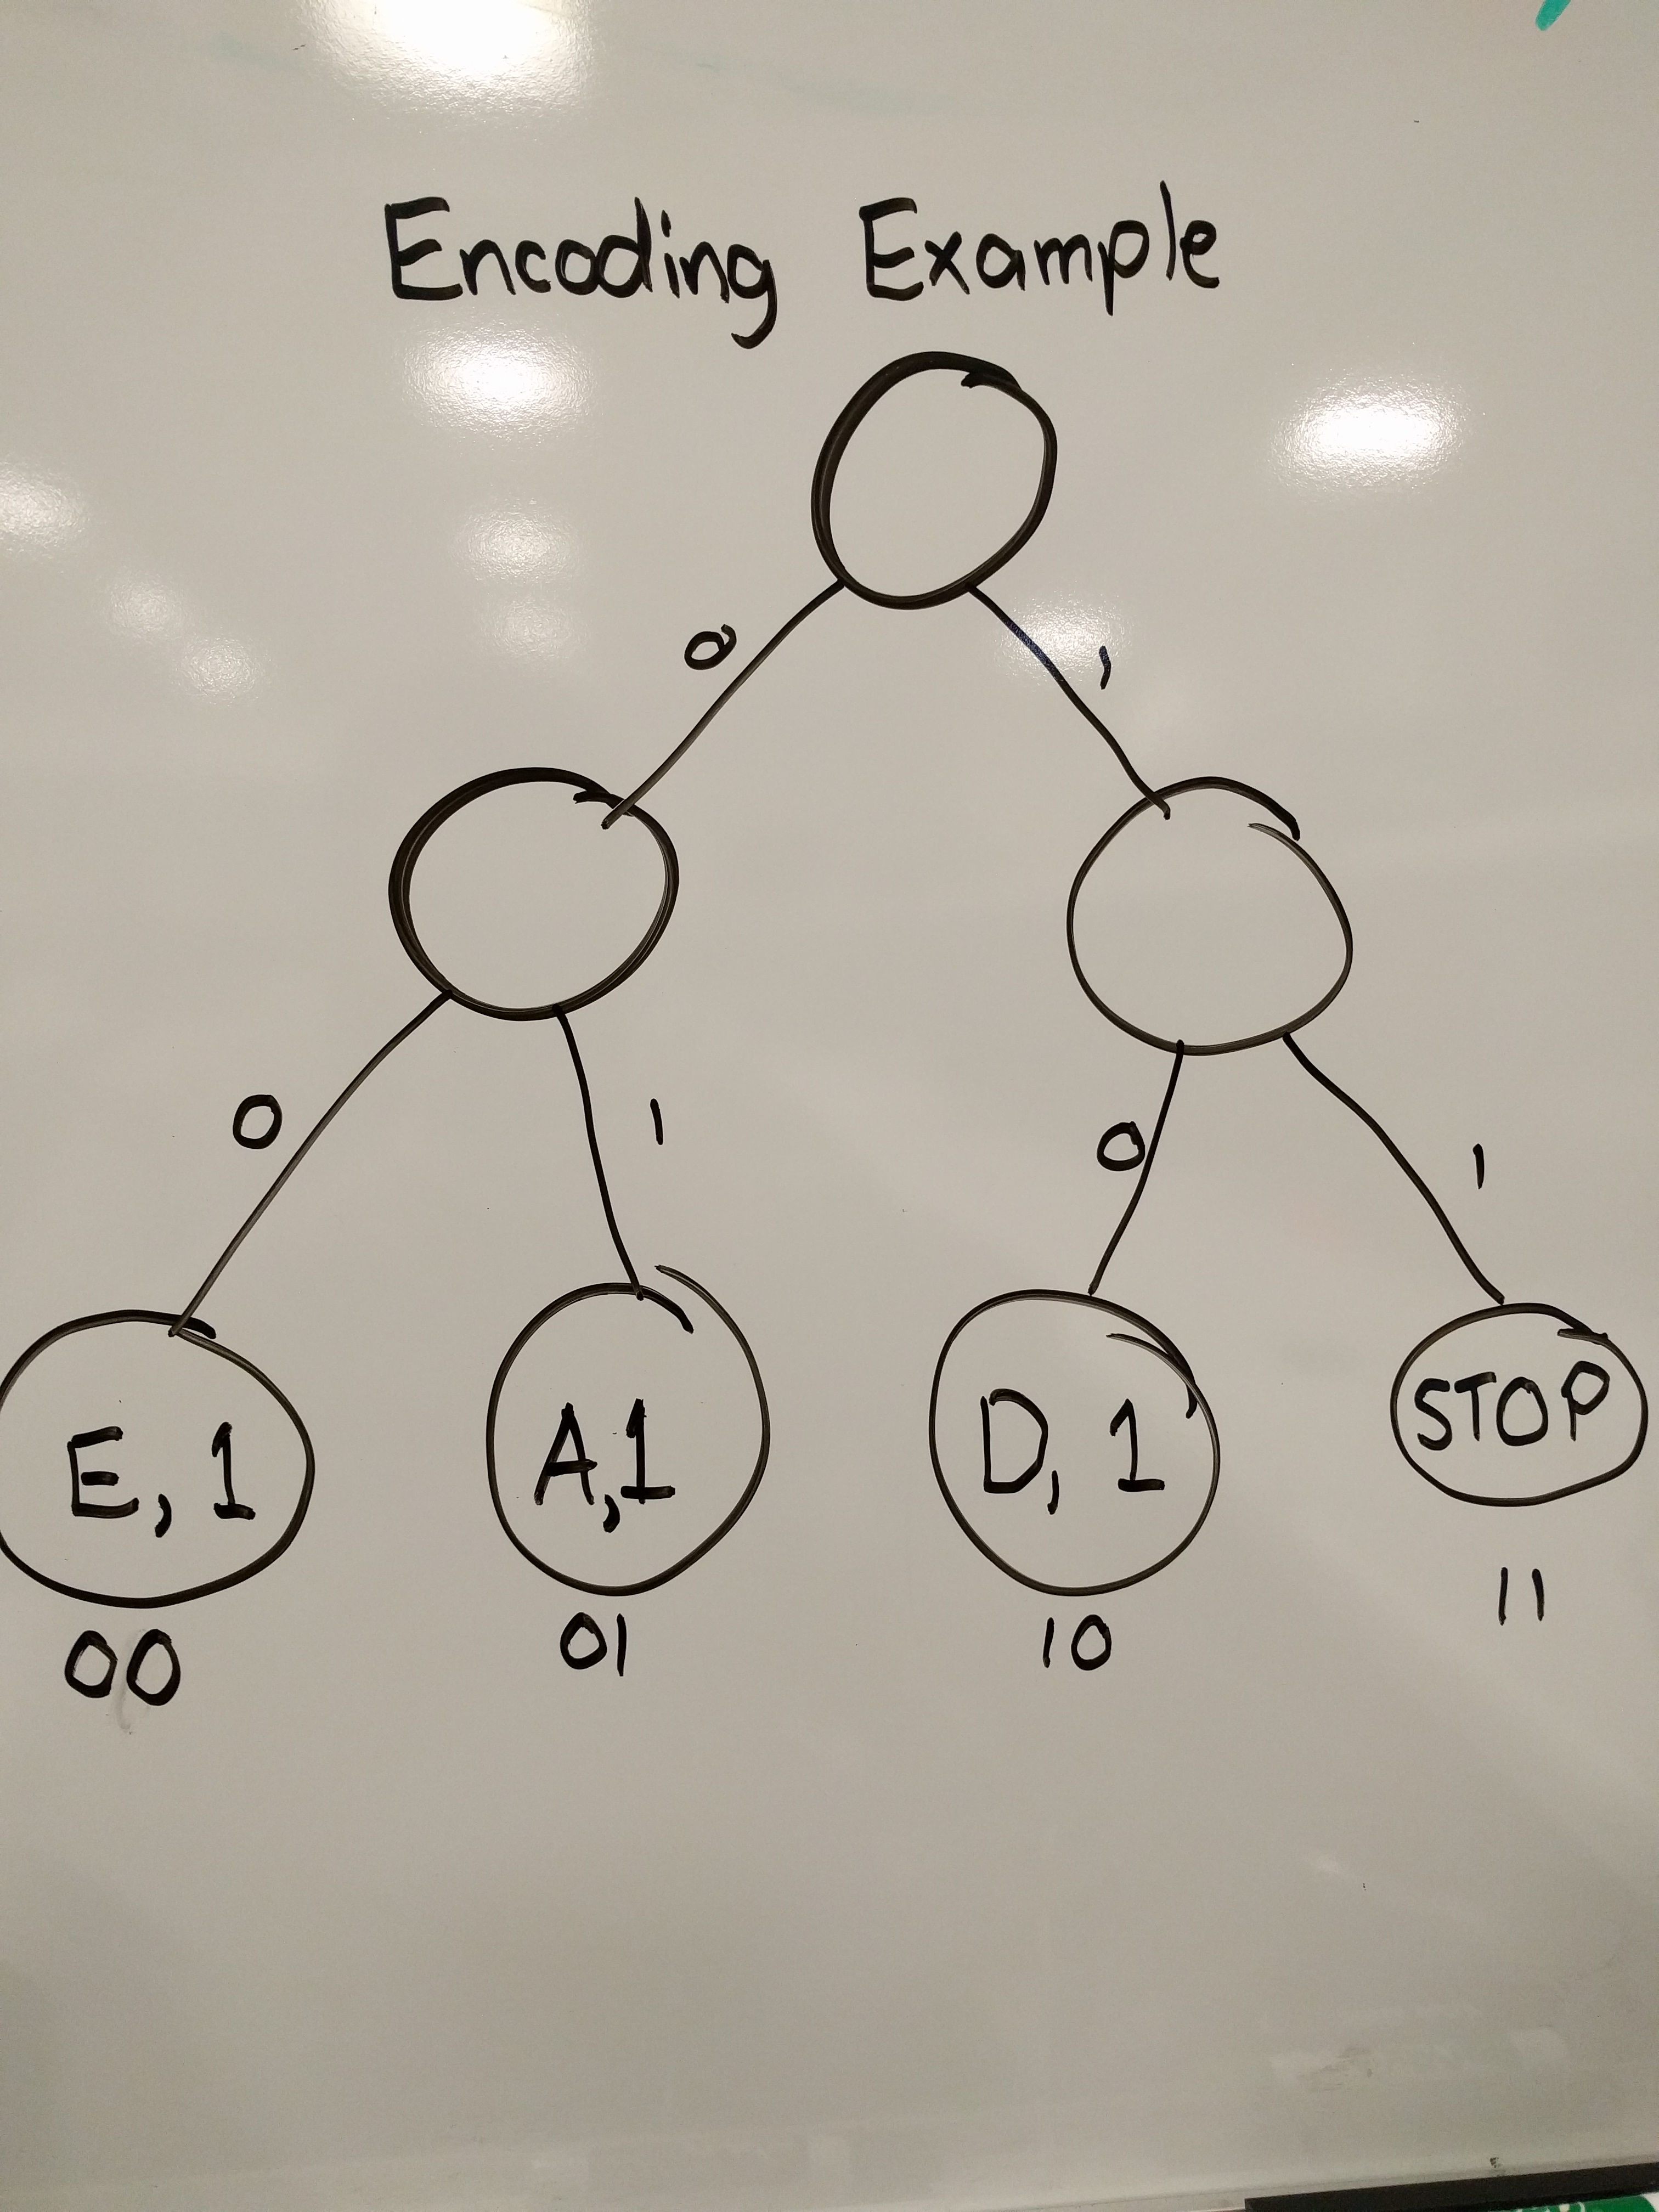 Encoding Example
0 1
0 1 0 1
E, 1 A,1 D, 1 STOP
00 01 10 11